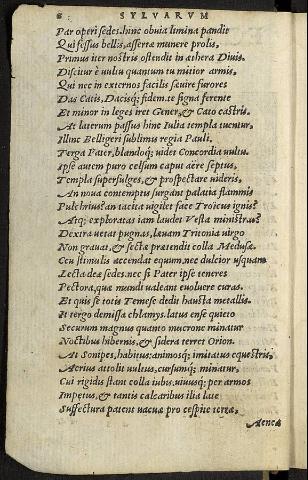 8 SYLVARVM
Par operi sedes. hinc obuia limina pandit
Qui fessus bellis, asserta munere prolis,
Primus iter nostris ostendit in æthera Diuis.
Discitur è vultu quantum tu mitior armis,
Qui nec in externos facilis sæuire furores
Das Catis, Dacisq; fidem. te signa ferente
Et minor in leges iret Gener, & Cato castris.
At laterum passus hinc Iulia templa tuentur.
Illinc Belligeri sublimis regia Pauli.
Terga Pater, blandoq; videt Concordia vultu.
Ipse autem puro celsum caput aëre septus,
Templa superfulges, & prospectare videris,
An noua contemptis surgant palatia flammis
Pulchrius? an tacita vigilet face Troicus ignis?
Atq; exploratas iam laudet Vesta ministras?
Dextra uetat pugnas, læuam Tritonia virgo
Non grauat, & sectæ prætendit colla Medusæ.
Ceu stimulis accendat equum. nec dulcior usquam
Lecta deæ sedes. nec si Pater ipse teneres
Pectora, quæ mundi valeant euoluere curas.
Et quis se totis Temese dedit hausta metallis.
It tergo demissa chlamys. latus ense quieto
Securum magnus quanto mucrone minatur
Noctibus hibernis, & sidera terret Orion.
At Sonipes, habitus; animosq; imitatus equestris
Acrius attollit vultus, cursumq; minatur,
Cui rigidis stant colla iubis. uiuusq; per armos
Impetus, & tantis calcaribus ilia late
Suffectura patent uacuæ pro cespite terræ,
Aenea